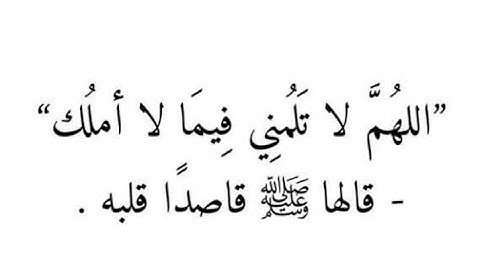 ”اللهُمَّ لا تَلُمنِي فِيمَا لا أملُك“
- قالها ﷺ قاصدًا قلبه .